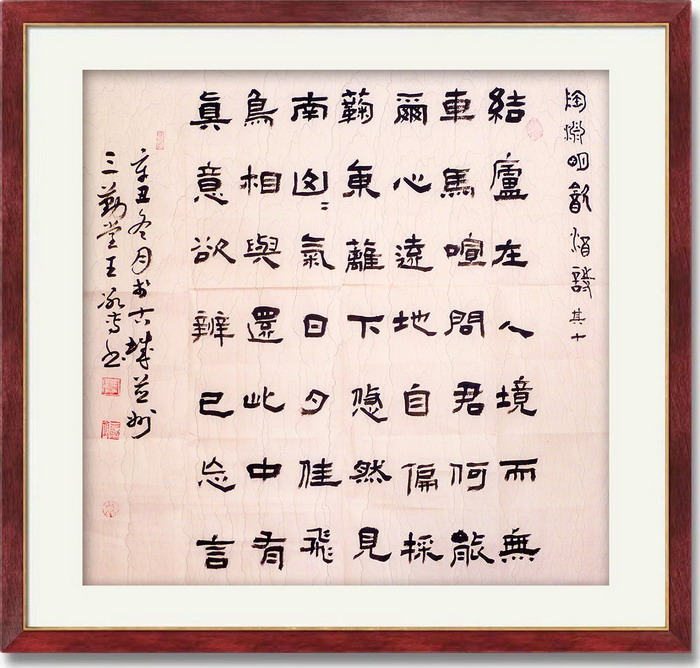 陶淵明飲酒詩 其十
結廬在人境而無
車馬喧問君何能
爾心遠地自偏採
鞠東籬下悠然見
南山〻氣日夕佳飛
鳥相與還此中有
眞意欲辨已忘言
辛丑冬月書古城並州
三勤堂王